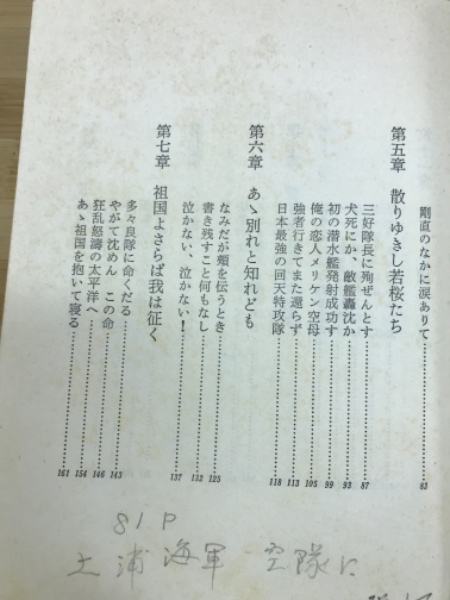 剛直のなかに涙ありて……83
第五章　散りゆきし若桜たち
三好隊長に殉ぜんとす……87
犬死にか、敵艦轟沈か……93
初の潜水艦発射成功す……99
俺の恋人メリケン空母……105
強者行きてまた還らず……113
日本最強の回天特攻隊……118
第六章　あゝ別れと知れども
なみだが頰を伝うとき……125
書き残すこと何もなし……132
泣かない、泣かない！……137
第七章　祖国よさらば我は征く
多々良隊に命くだる……143
やがて沈めん　この命……146
狂乱怒濤の太平洋へ……154
あゝ祖国を抱いて寝る……161
81P
土浦海軍　空隊に